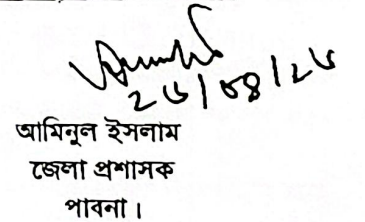 ২৬/০৪/২৬
আমিনুল ইসলাম
জেলা প্রশাসক
পাবনা।